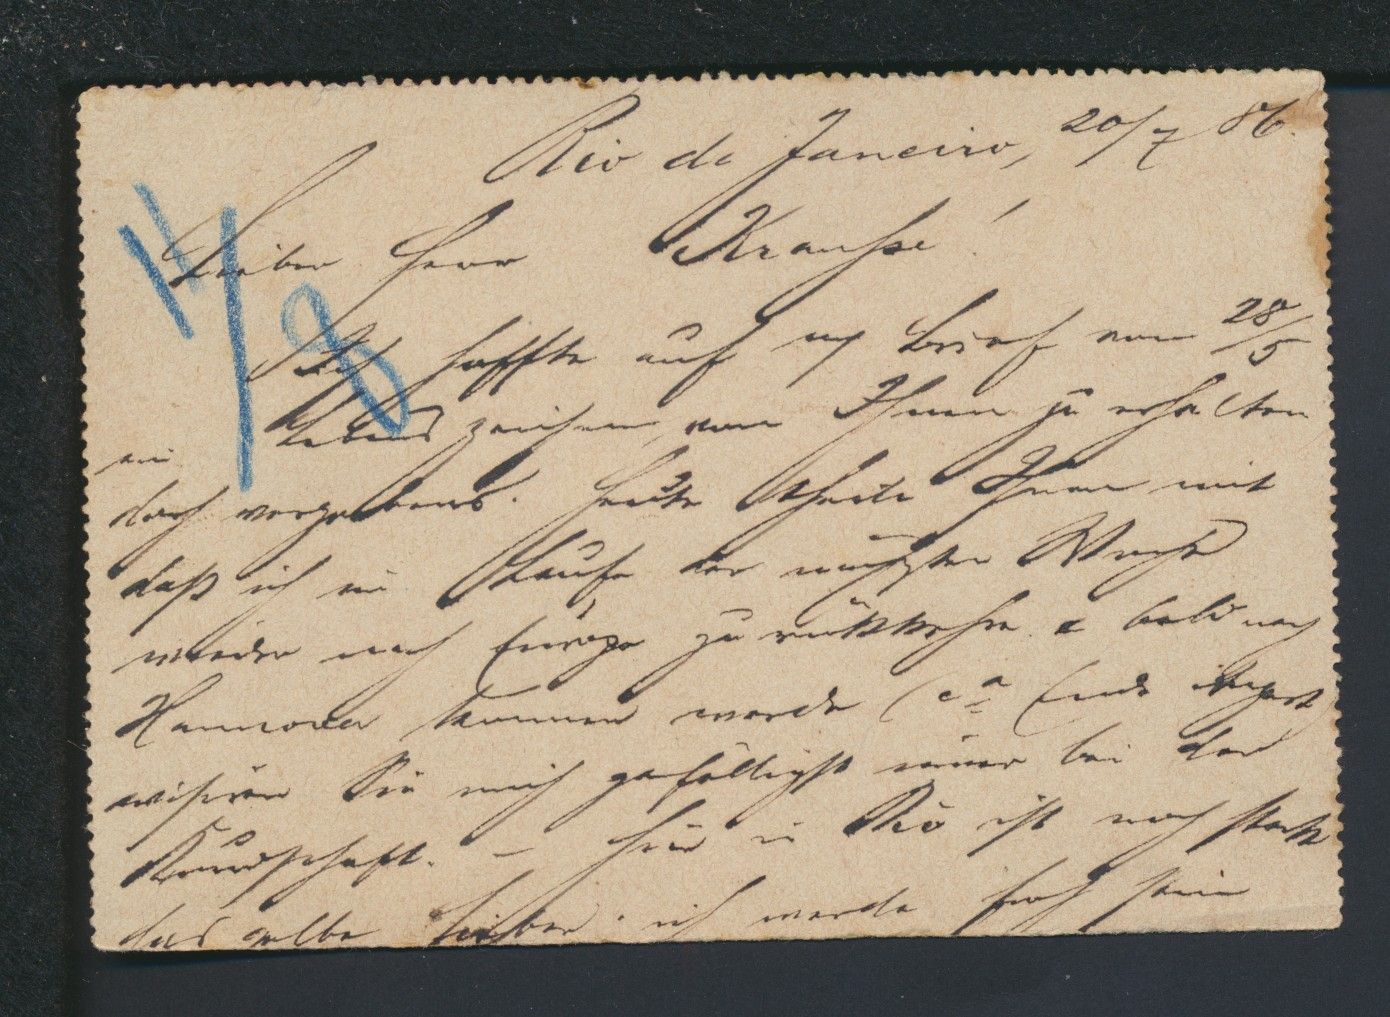 Rio de Janeiro, 20/7 86.
Lieber Herr Krauhse!
11/8
Ich hoffte auf m/ Brief vom 28/5
ein Lebenszeichen von Ihnen zu erhalten
doch vergebens. Heute theile Ihnen mit
daß ich im Laufe der nächsten Woche
wieder nach Europa zurückkehre & bald nach
Hannover kommen werde (ca Ende August
avisiren Sie mich gefälligst immer bei der
Kundschaft. – Hier in Rio ist noch stark
das gelbe Fieber ich werde froh sein